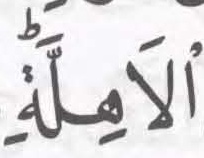 اَلْاَهِلَّةِؕ